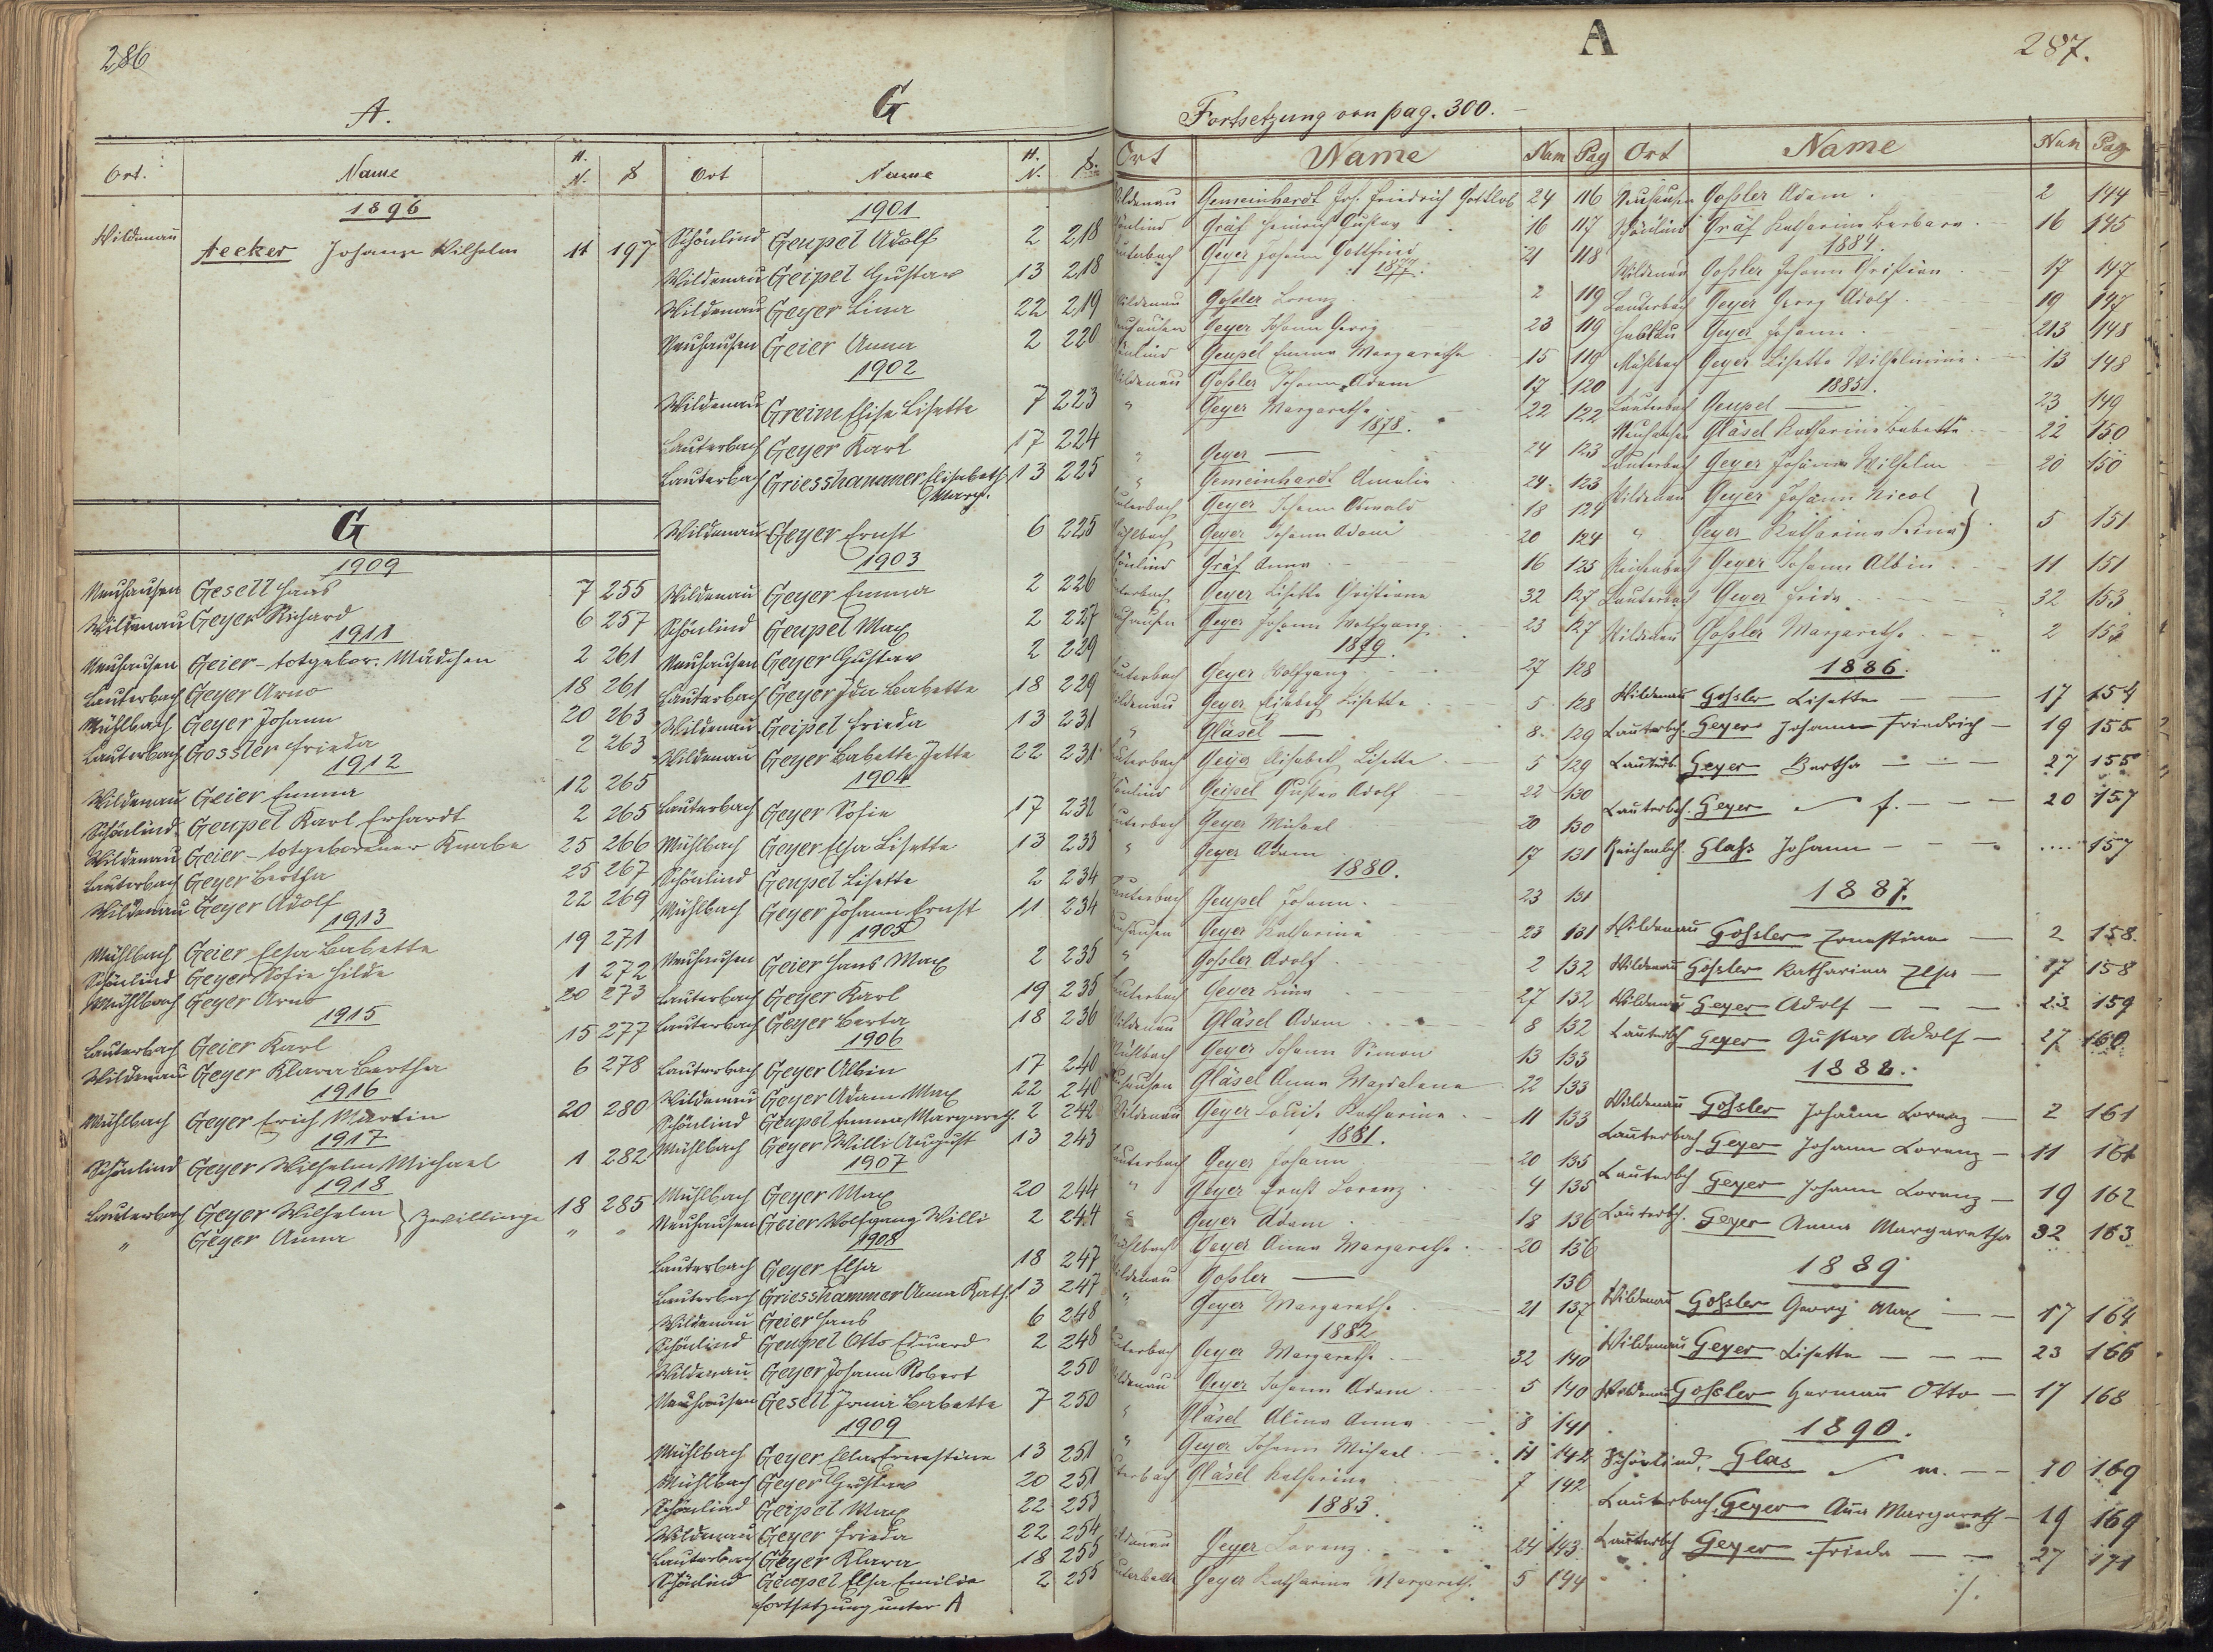 286
A.
Ort. Name H. N. S
1896
Wildenau Aecker Johann Wilhelm 11 197
G
1909
Neuhausen Gesell Hans 7 255
Wildenau Geyer Richard 6 257
1911
Neuhausen Geier - totgebor. Mädchen 2 261
Lauterbach Geyer Arno 18 261
Mühlbach Geyer Johann 20 263
Lauterbach Gossler Frieda 2 263
1912
Wildenau Geier Emma 12 265
Schönlind Geupel Karl Erhardt 2 265
Wildenau Geier - totgeborener Knabe 25 266
Lauterbach Geyer Bertha 25 267
Wildenau Geyer Adolf 22 269
1913
Mühlbach Geier Elsa Babette 19 271
Schönlind Geyer Sofie Hilde 1 272
Mühlbach Geyer Arno 20 273
1915
Lauterbach Geier Karl 15 277
Wildenau Geyer Klara Bertha 6 278
1916
Mühlbach Geyer Erich Martin 20 280
1917
Schönlind Geyer Wilhelm Michael 1 282
1918
Lauterbach Geyer Wilhelm } Zwillinge 18 285
" Geyer Anna " "
G
Ort Name H. N. S.
1901
Schönlind Geupel Adolf 2 218
Wildenau Geipel Gustav 13 218
Wildenau Geyer Lina 22 219
Neuhausen Geier Anna 2 220
1902
Wildenau Greim Elise Lisette 7 223
Lauterbach Geyer Karl 17 224
Lauterbach Griesshammer Elisabeth Marg. 13 225
Wildenau Geyer Ernst 6 225
1903
Wildenau Geyer Emma 2 226
Schönlind Geupel Max 2 227
Neuhausen Geyer Gustav 2 229
Lauterbach Geyer Ida Babette 18 229
Wildenau Geipel Frieda 13 231
Wildenau Geyer Babette Jette 22 231
1904
Lauterbach Geyer Sofie 17 232
Mühlbach Geyer Elsa Lisette 13 233
Schönlind Geupel Lisette 2 234
Mühlbach Geyer Johann Ernst 11 234
1905
Neuhausen Geier Hans Max 2 235
Lauterbach Geyer Karl 19 235
Lauterbach Geyer Berta 18 236
1906
Lauterbach Geyer Albin 17 240
Wildenau Geyer Adam Max 22 240
Schönlind Geupel Emma Margareth. 2 242
Mühlbach Geyer Willi August 13 243
1907
Mühlbach Geyer Max 20 244
Neuhausen Geier Wolfgang Willi 2 244
1908
Lauterbach Geyer Elsa 18 247
Lauterbach Griesshammer Anna Kath. 13 247
Wildenau Geier Hans 6 248
Schönlind Geupel Otto Eduard 2 248
Wildenau Geyer Johann Robert 250
Neuhausen Gesell Irma Babette 7 250
1909
Mühlbach Geyer Ella Ernestine 13 251
Mühlbach Geyer Gustav 20 251
Schönlind Geipel Max 22 253
Wildenau Geyer Frieda 22 254
Lauterbach Geyer Klara 18 255
Schönlind Geupel Elsa Emilie 2 255
Fortsetzung unter A
A
287.
Fortsetzung von pag. 300.
Ort Name Num Pag
Wildenau Gemeinhardt Joh. Friedrich Gottlob 24 116
Schönlind Gräf Heinrich Gustav 16 117
Lauterbach Geyer Johann Gottfried 21 118
1877.
Wildenau Goßler Lorenz 2 119
Neuhausen Geyer Johann Georg 23 119
Schönlind Geupel Emma Margarethe 15 119
Wildenau Goßler Johann Adam 17 120
" Geyer Margarethe 22 122
1878.
" Geyer — 24 123
" Gemeinhardt Amalie 24 123
Lauterbach Geyer Johann Oswald 18 124
Mühlbach Geyer Johann Adam 20 124
Schönlind Gräf Anna 16 125
Lauterbach Geyer Lisette Christiane 32 127
Neuhausen Geyer Johann Wolfgang 23 127
1879.
Lauterbach Geyer Wolfgang 27 128
Wildenau Geyer Elisabeth Lisette 5 128
" Gläsel — 8 129
Lauterbach Geyer Elisabeth Lisette 5 129
Schönlind Geipel Gustav Adolf 22 130
Lauterbach Geyer Michael 20 130
" Geyer Adam 17 131
1880.
Lauterbach Geupel Johann 23 131
Neuhausen Geyer Katharina 23 131
" Goßler Adolf 2 132
Lauterbach Geyer Lina 27 132
Wildenau Gläsel Adam 8 132
Mühlbach Geyer Johann Simon 13 133
Neuhausen Gläsel Anna Magdalena 22 133
Wildenau Geyer Louise Katharina 11 133
1881.
Lauterbach Geyer Johann 20 135
" Geyer Ernst Lorenz 4 135
" Geyer Adam 18 136
Mühlbach Geyer Anna Margarethe 20 136
Wildenau Goßler — 136
" Geyer Margarethe 21 137
1882
Lauterbach Geyer Margarethe 32 140
Wildenau Geyer Johann Adam 5 140
" Gläsel Alina Anna 8 141
" Geyer Johann Michael 11 142
Lauterbach Gläsel Katharina 7 142
1883.
Wildenau Geyer Lorenz 24 143
Lauterbach Geyer Katharina Margareth. 5 144
Ort Name Num Pag
Neuhausen Goßler Adam 2 144
Schönlind Gräf Katharina Barbara 16 145
1884.
Wildenau Goßler Johann Christian 17 147
Lauterbach Geyer Georg Adolf 19 147
Geyer Johann 213 148
Mühlbach Geyer Lisette Wilhelmine 13 148
1885.
Lauterbach Geupel — 23 149
Neuhausen Gläsel Katharina Babette 22 150
Lauterbach Geyer Johann Wilhelm 20 150
Wildenau Geyer Johann Nicol }
" Geyer Katharina Lina } 5 151
Reichenbach Geyer Johann Albin 11 151
Lauterbach Geyer Frida 32 153
Wildenau Goßler Margarethe 2 153
1886.
Wildenau Goßler Lisette 17 154
Lauterbch. Geyer Johann Friedrich 19 155
Lauterb. Geyer Bertha 27 155
Lauterbch. Geyer f. 20 157
Reichenbch. Glass Johann .... 157
1887.
Wildenau Gossler Ernestine 2 158.
Wildenau Gossler Katharina Elsa 17 158
Wildenau Geyer Adolf 23 159
Lauterbch Geyer Gustav Adolf 27 160
1888.
Wildenau Gossler Johann Lorenz 2 161
Lauterbach Geyer Johann Lorenz 11 161
Lauterbch Geyer Johann Lorenz 19 162
Lauterbch. Geyer Anna Margaretha 32 163
1889
Wildenau Gossler Georg Max 17 164
Wildenau Geyer Lisette 23 166
Wildenau Gossler Hermann Otto 17 168
1890.
Schönlind, Glas m. 10 169
Lauterbach, Geyer Ana Margareth 19 169
Lauterbch Geyer Frieda 27 171
./.